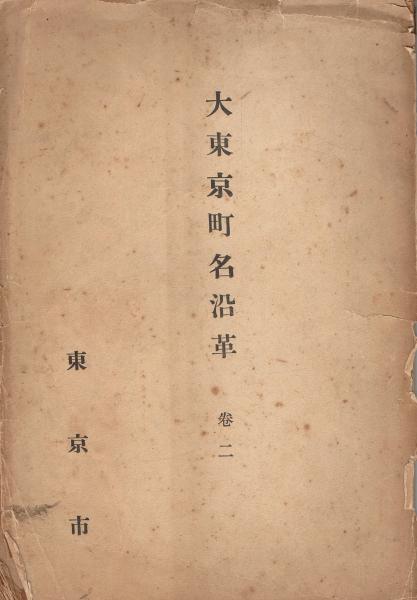 大東京町名沿革 卷二
東京市